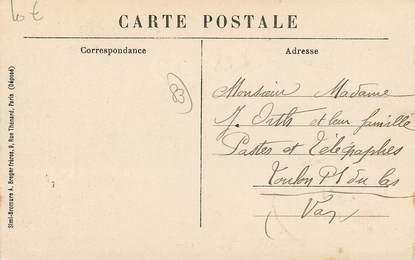 10 €
CARTE POSTALE
Correspondance
Adresse
Monsieur Madame
J. Orth et leur famille
Postes et Télégraphes
Toulon Pt du las
Var
Simi-Bromure A. Breger frères, 9, Rue Thénard, Paris (Déposé)